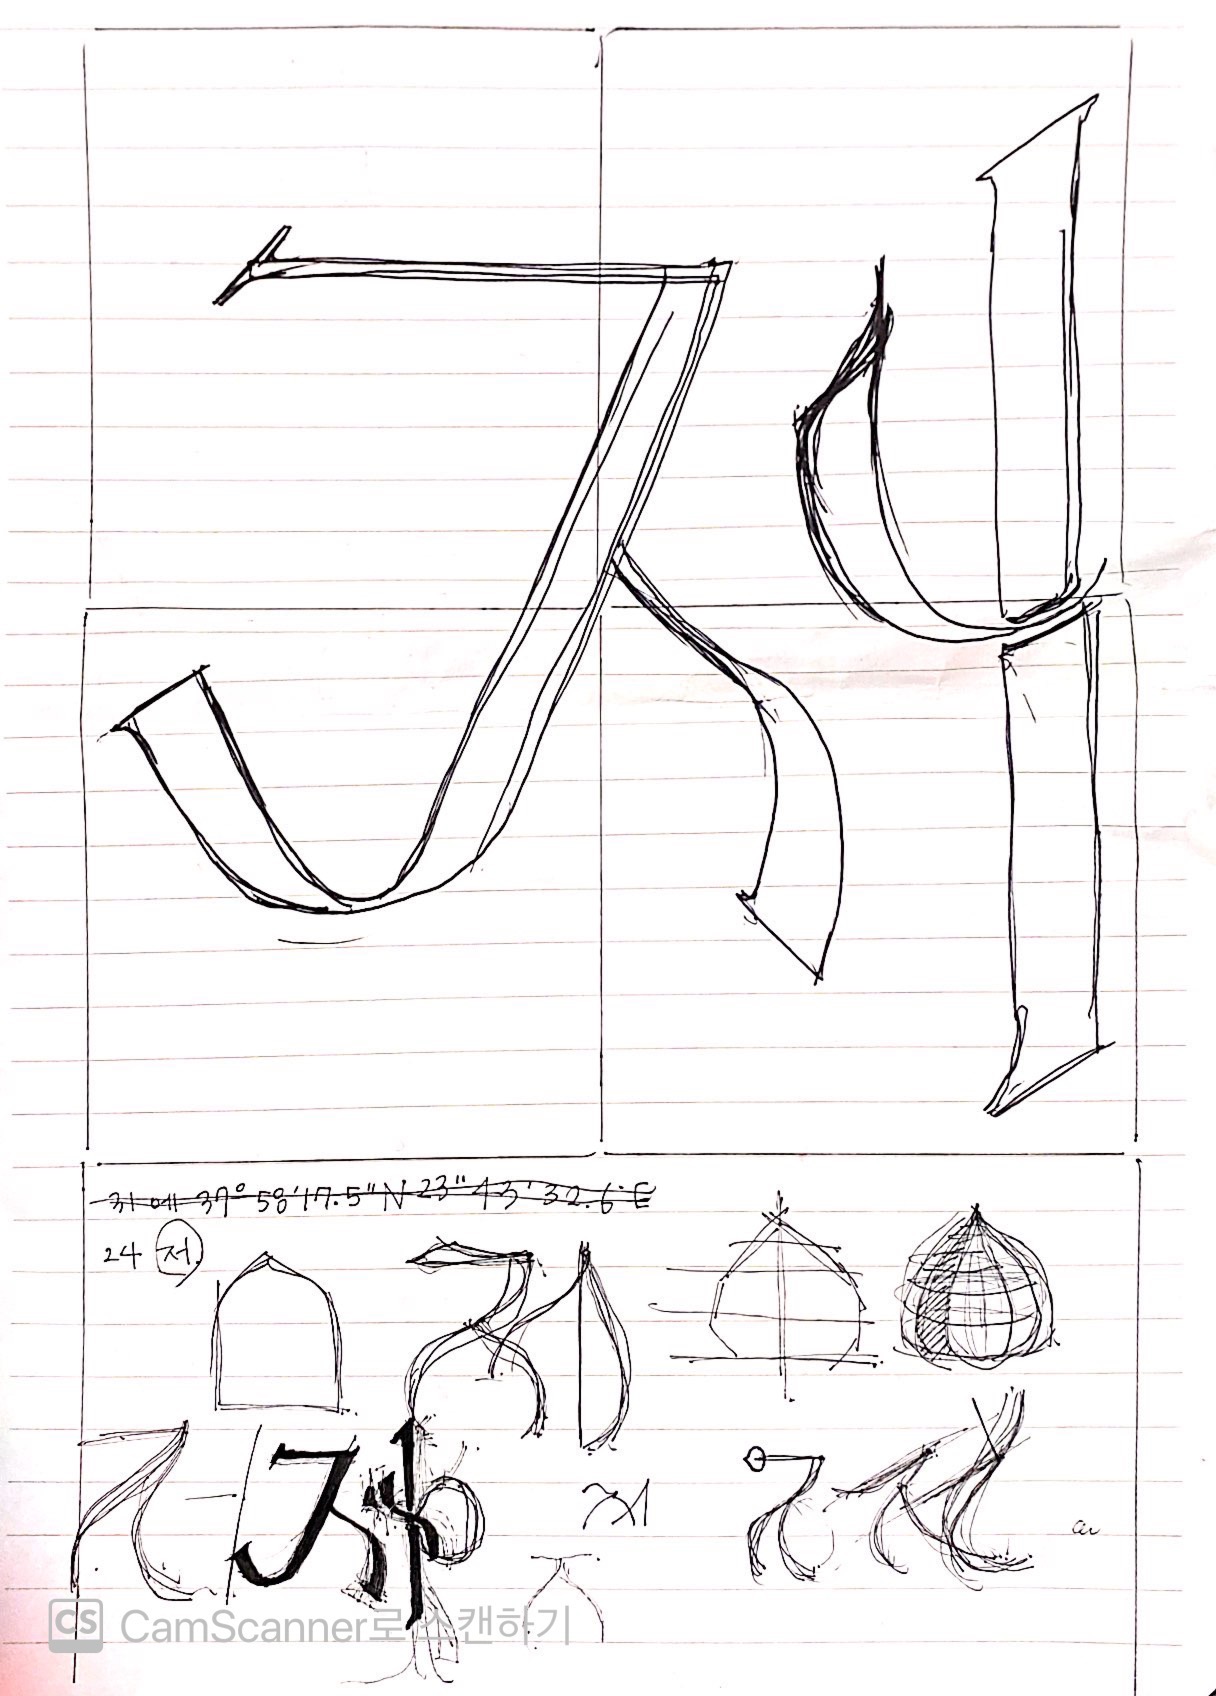 저
지에 37° 58'17.5"N 23"43'32.6"E
24 저.
저
저
CS CamScanner로 스캔하기